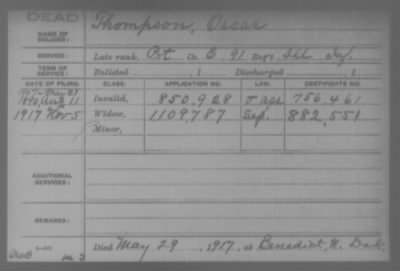 DEAD
NAME OF SOLDIER: Thompson, Oscar
SERVICE: Late rank, Pvt Co. E, 91 Reg't Ill Inf.
TERM OF SERVICE: Enlisted , 1 Discharged , 1
DATE OF FILING. CLASS. APPLICATION NO. LAW. CERTIFICATE NO.
1890, 11 Invalid, 850,928 756,461
1917 Nov 5 Widow, 1109,787 Sep. 882,551
Minor,
ADDITIONAL SERVICES:
REMARKS:
Died May 29, 1917, at Benedict, N. Dak.